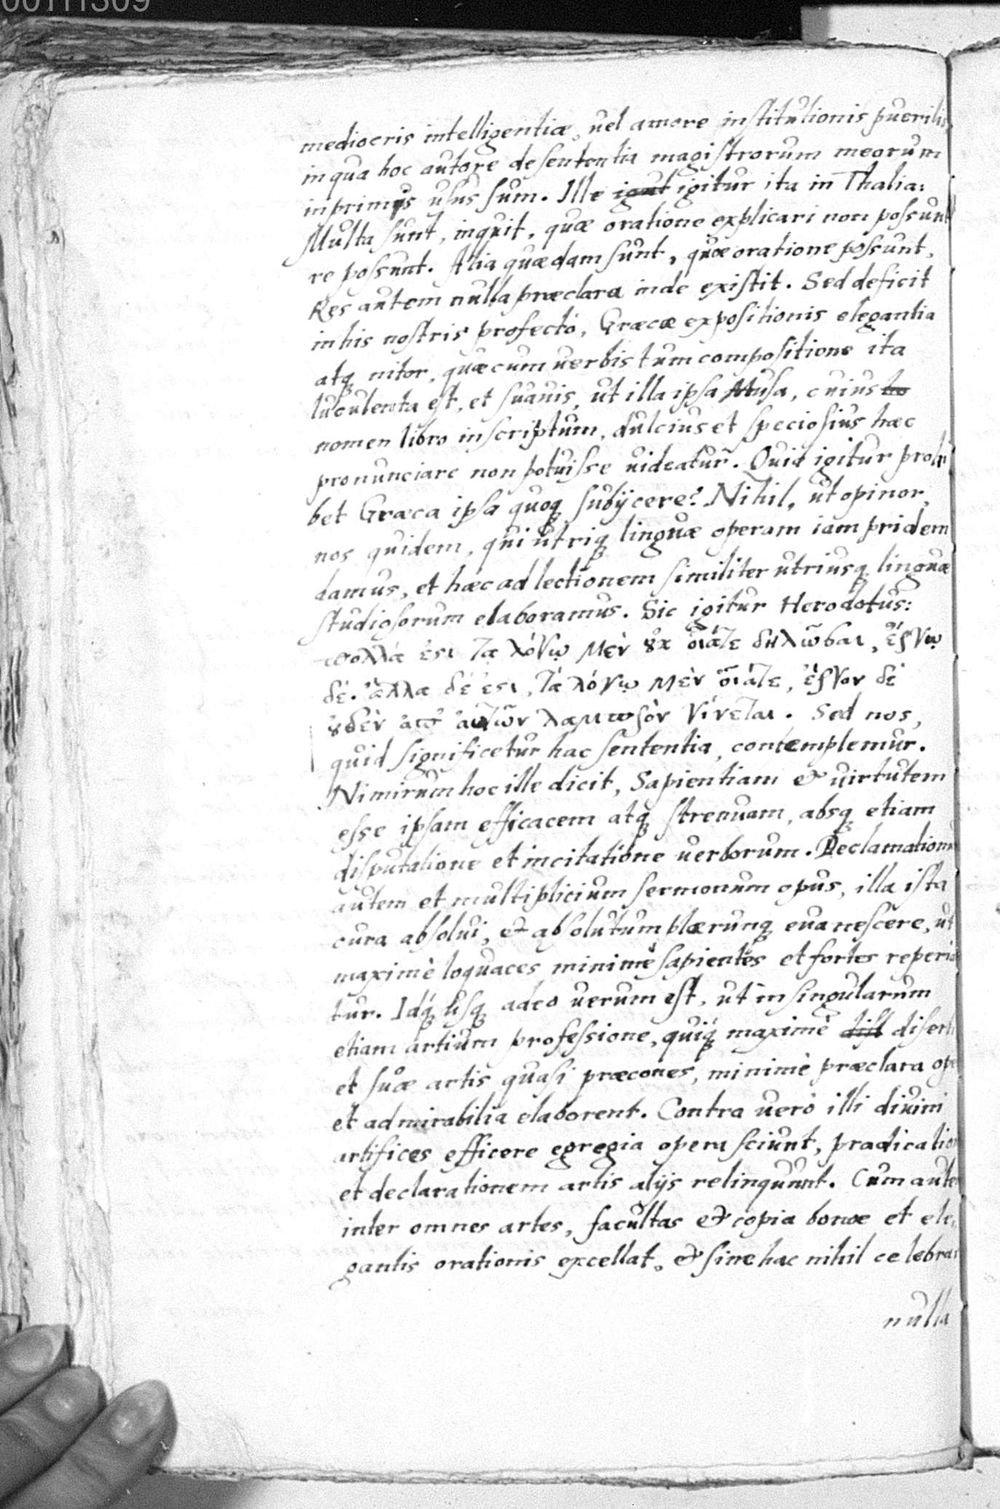 00111309
mediocris intelligentiæ, uel amore institutionis puerilis
in qua hoc autore de sententia magistrorum meorum
inprimys usus sum. Ille igitur ita in Thalia:
Multa sunt, inquit, quæ oratione explicari non possunt
re possunt. Alia quædam sunt, quæ oratione possunt,
Res autem nulla præclara inde existit. Sed deficit
in his nostris profectò, Græcæ expositionis elegantia
atq nitor, quæ cum uerbis tum compositione ita
luculenta est, et suauis, ut illa ipsa Musa, cuius
nomen libro inscriptum, dulcius et speciosius hæc
pronunciare non potuisse uideatur. Quid igitur prohi
bet Græca ipsa quoq subijcere? Nihil, ut opinor,
nos quidem, qui utriq linguæ operam iam pridem
damus, et hæc ad lectionem similiter utriusq linguæ
studiosorum elaboramus. Sic igitur Herodotus:
πολλά ἐϛι τὰ λόγῳ μὲν ȣ̓κ οἷάτε δηλῶσαι, ἔργῳ
δέ. ἄλλα δέ ἐϛι, τὰ λόγῳ μὲν οἷάτε, ἔργον δὲ
ȣ̓δὲν ἀπ' αὐτῶν λαμπρὸν γίνεται. Sed nos,
quid significetur hac sententia, contemplemur.
Nimirum hoc ille dicit, Sapientiam & uirtutem
esse ipsam efficacem atq strenuam, absq etiam
disputatione et incitatione uerborum. Declamationum
autem et multiplicium sermonum opus, illa ista
cura absolui, & absolutum plærunq euanescere, ut
maximè loquaces minimè sapientes et fortes reperiā
tur. Idq usq adeo uerum est, ut in singularum
etiam artium professione, quiq maximè diserti
et suæ artis quasi præcones, minimè præclara ope
et admirabilia elaborent. Contra uerò illi diuini
artifices efficere egregia opera sciunt, prædication
et declarationem artis alijs relinquunt. Cum autem
inter omnes artes, facultas & copia bonæ et ele,
gantis orationis excellat, & sine hac nihil celebrar
nulla